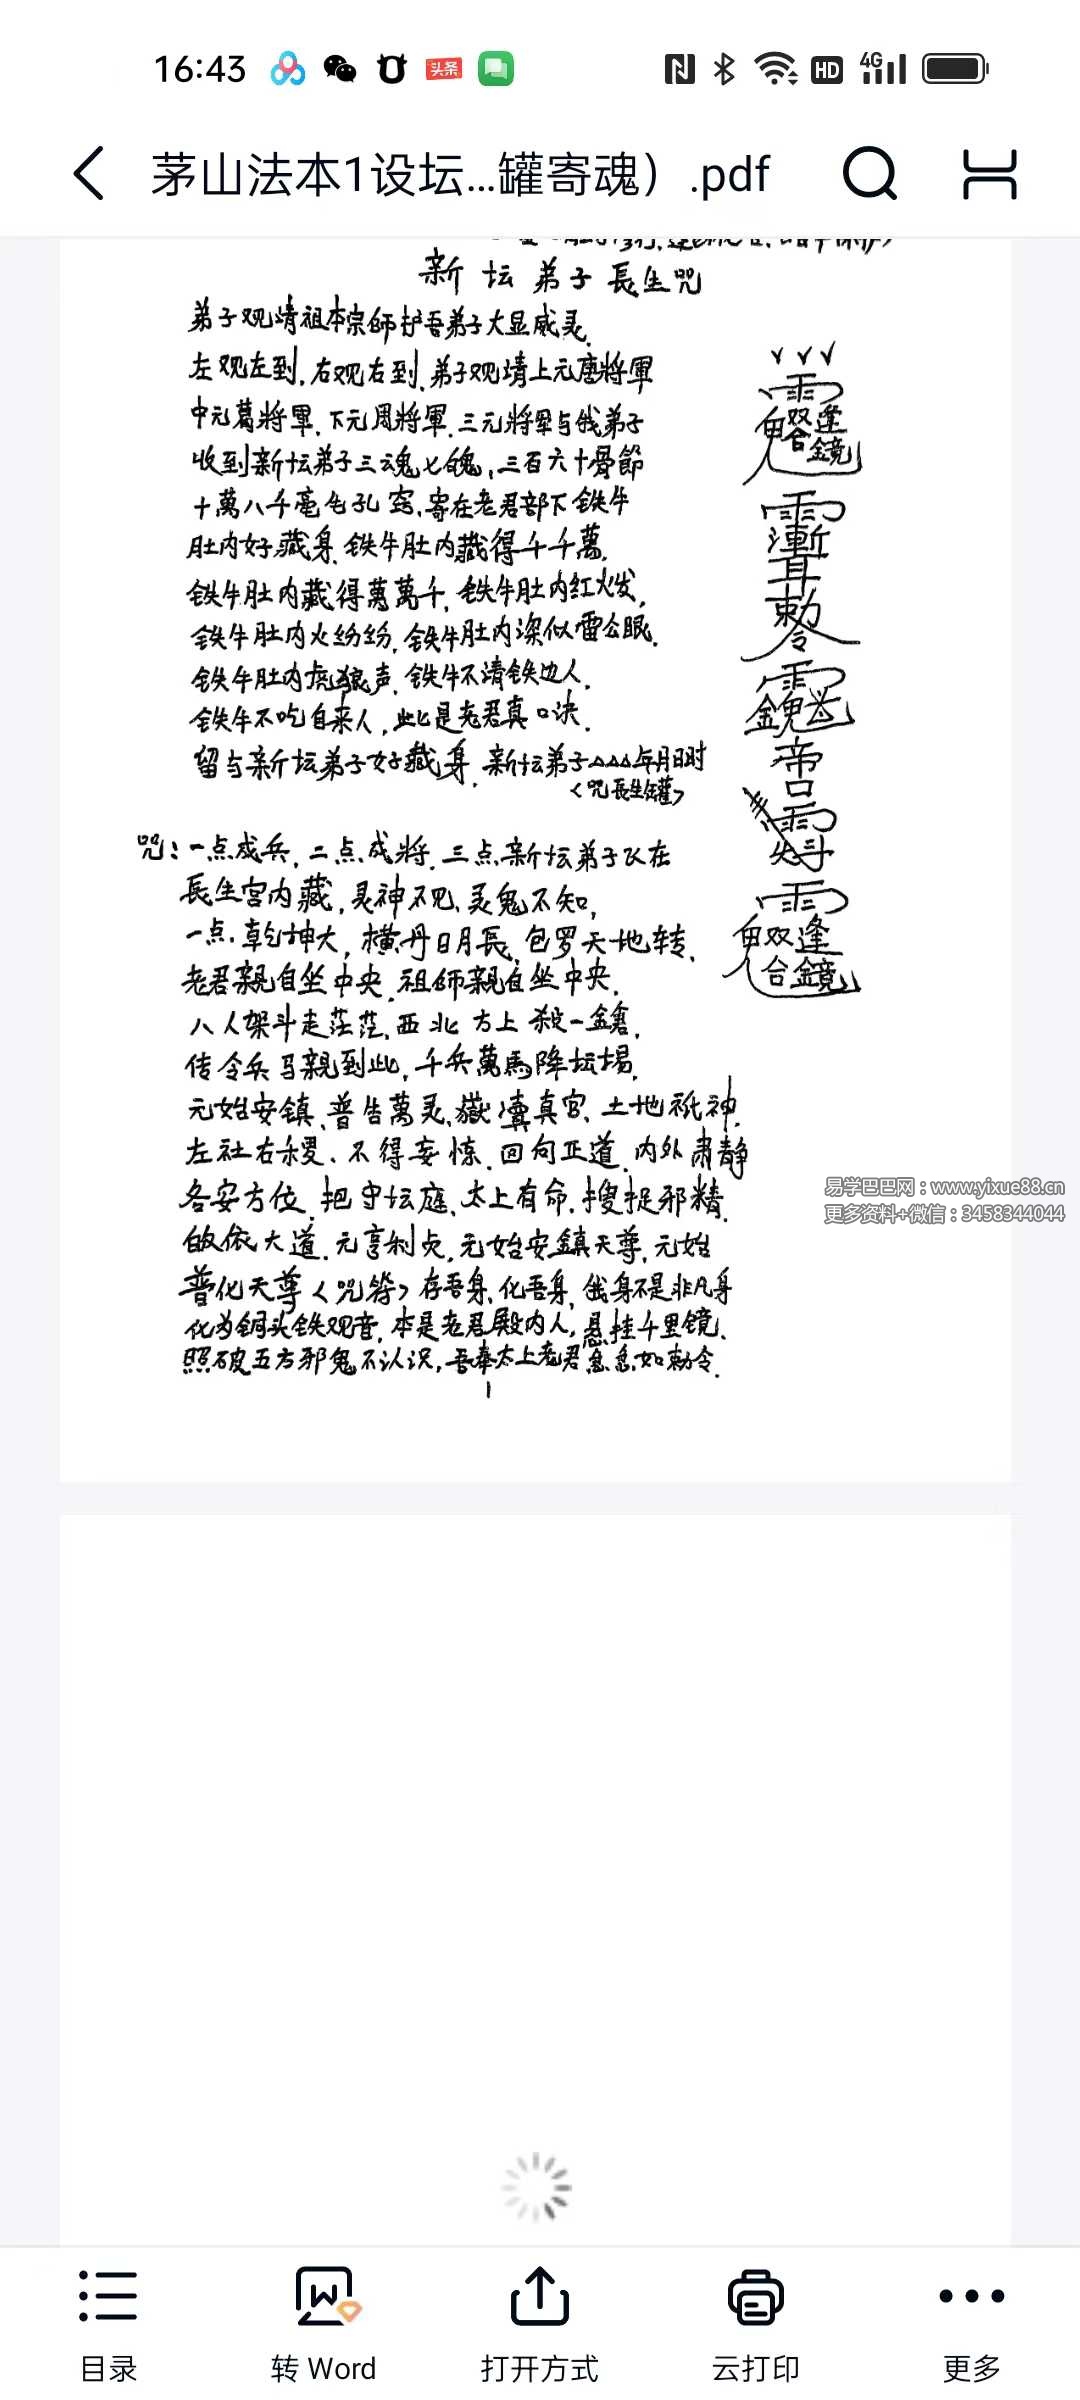 16:43
头条
HD
4G
茅山法本1设坛...罐寄魂）.pdf
新坛弟子長生咒
弟子观请祖本宗師护吾弟子大显威灵.
左观左到.右观右到.弟子观请上元唐將軍
中元葛將軍.下元周將軍.三元將軍与我弟子
收到新坛弟子三魂七魄,三百六十骨節
十萬八千毫毛孔窍、寄在老君部下铁牛
肚内好藏身.铁牛肚内藏得千千萬.
铁牛肚内藏得萬萬千,铁牛肚内红火发,
铁牛肚内火纷纷,铁牛肚内深似雷公眠.
铁牛肚内虎狼声.铁牛不请铁边人.
铁牛不吃自来人,此是老君真口决.
留与新坛弟子好藏身.新坛弟子△△△年月日时
<咒長生罐>
咒:一点成兵,二点成將.三点新坛弟子飞在
長生宫内藏,灵神不见、灵鬼不知,
一点.乾坤大,横丹日月長,包罗天地转、
老君親自坐中央.祖师親自坐中央.
八人架斗走茫茫,西北方上殺一鎗,
传令兵马親到此,千兵萬馬降坛場.
元始安镇、普告萬灵、嶽瀆真官、土地祇神.
左社右稷、不得妄惊.回向正道.内外肃静
各安方位.把守坛庭、太上有命.搜捉邪精.
皈依大道.元亨利贞,元始安鎮天尊、元始
普化天尊<咒符>存吾身、化吾身,我身不是非凡身
化为铜头铁观音,本是老君殿内人,悬挂千里镜、
照破五方邪鬼不认识,吾奉太上老君急急如勅令.
1
雷
双逢
合鏡
漸
耳
勅令
帝
双逢
合鏡
易学巴巴网：www.yixue88.cn
更多资料+微信：3458344044
目录
转 Word
打开方式
云打印
更多